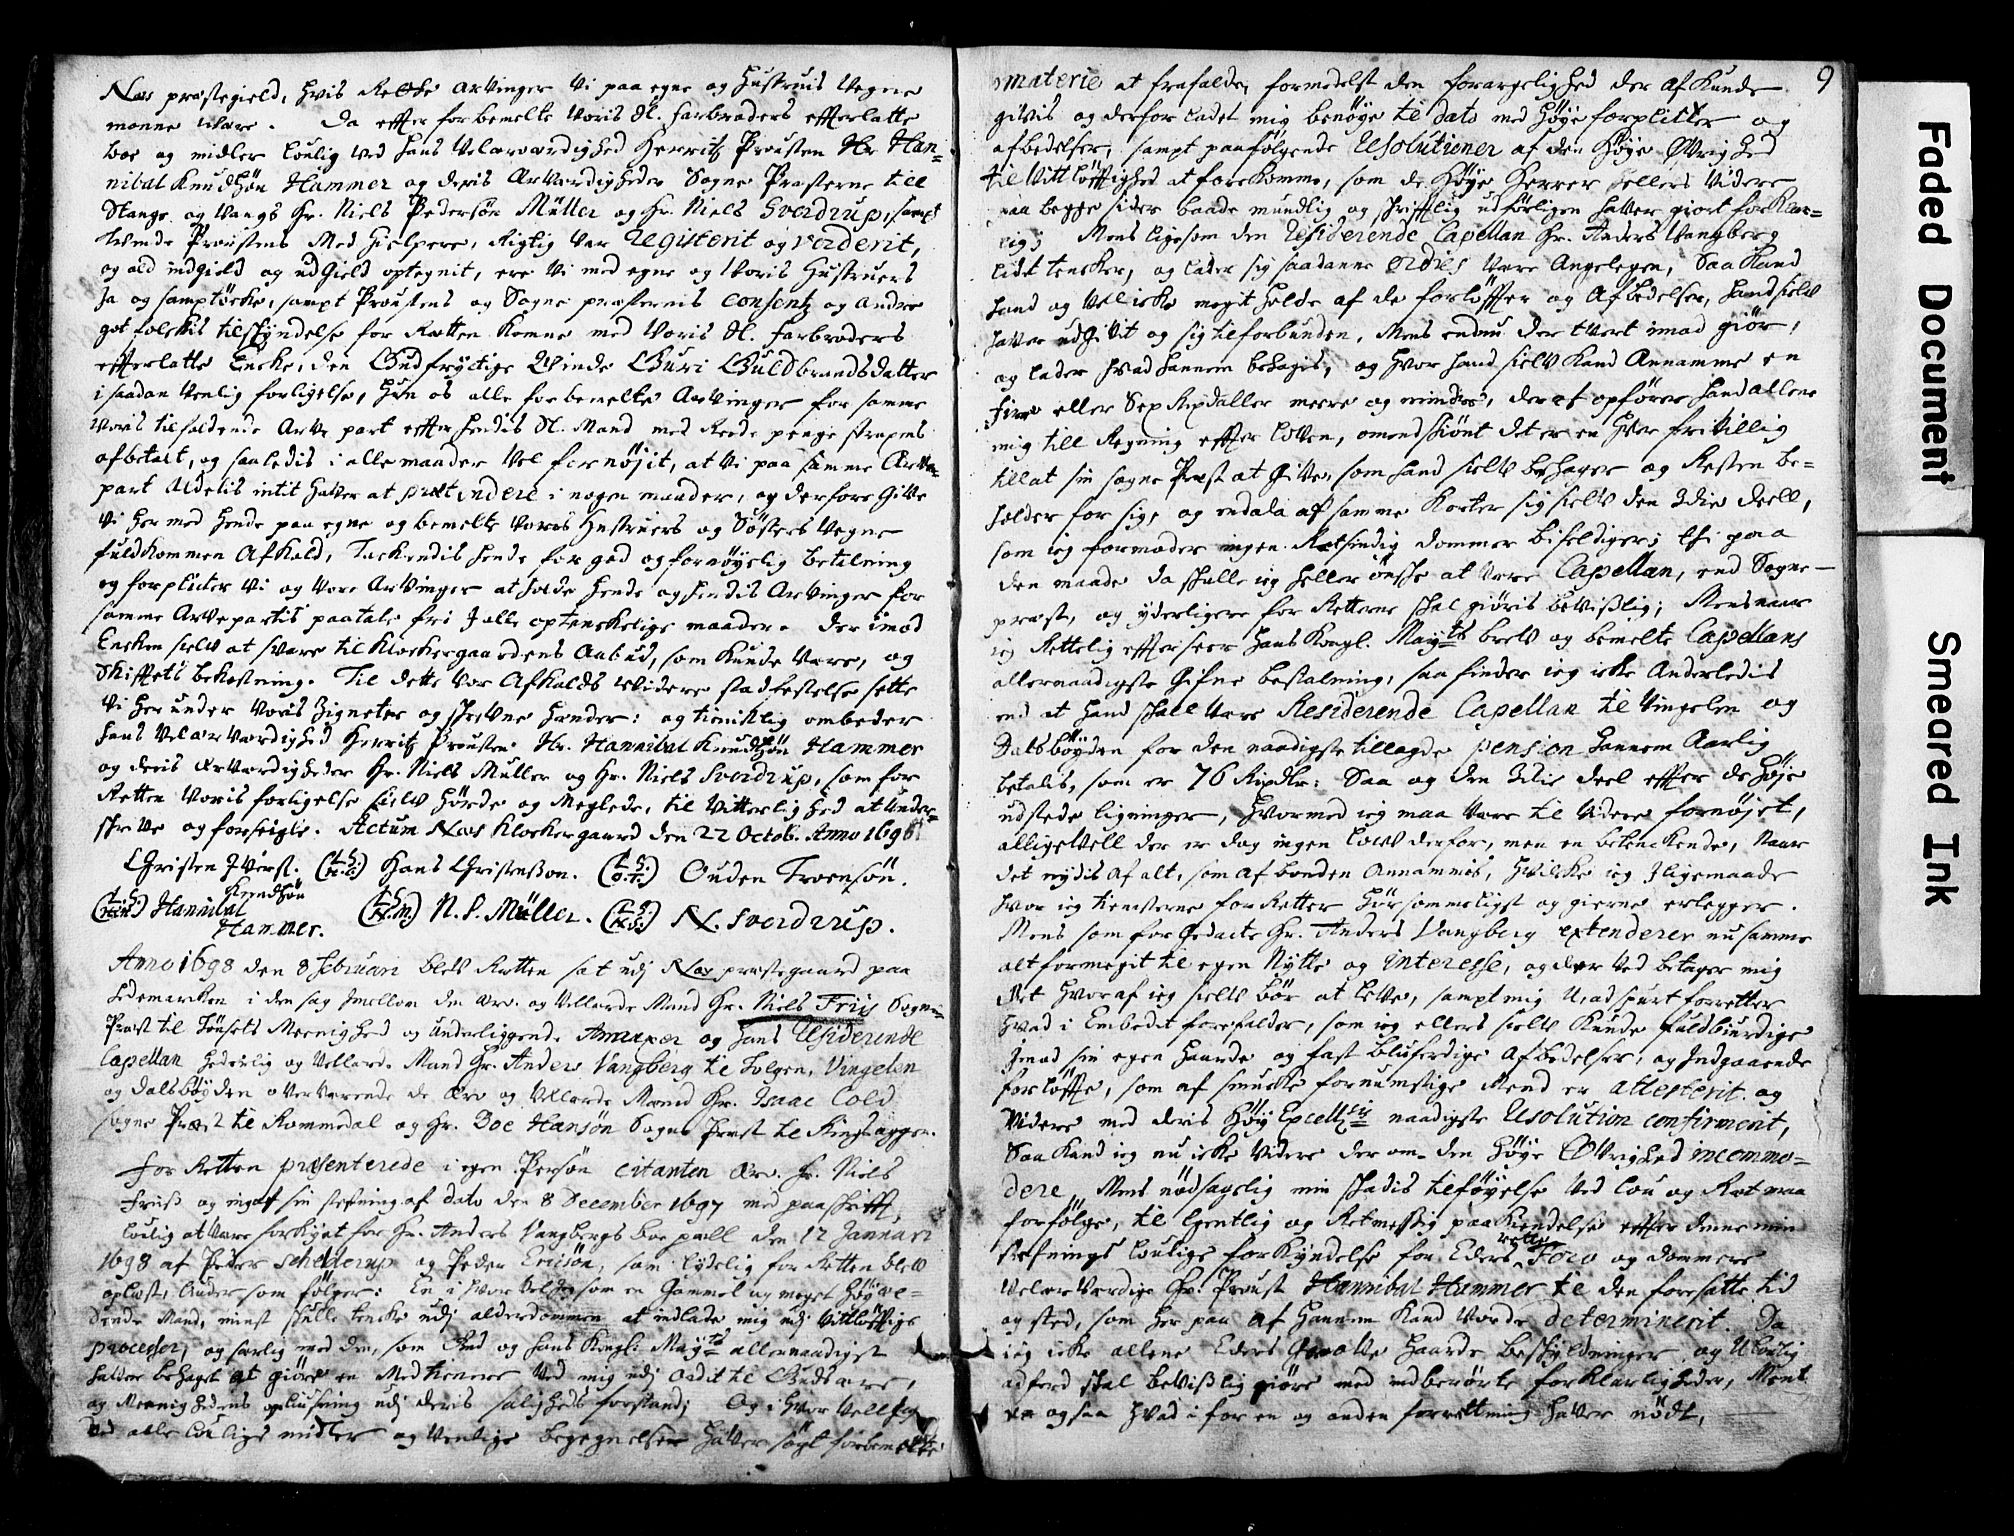 Næs præstegield, hvis Rette Arvinger Vi paa egne og Hustruis Vegne
monne Være. Da effter forbemelte Voris Sl. Farbroders effterlatte
boe og midler louligVed hans Velærværdighed Herritz Prousten Hr Han-
nibal Knudsøn Hammer og deris Ærværdigheder Sogne Præsterne till
Stange og Vangs Hr. Niels Pedersøn Müller og Hr. Niels Sverdrup, sampt
Proustens Med hielpere, Rigtig Var Registerit og Verderit,
og ald indgield og udgield optegnit, ere Vi med egne og Voris Hustruers
Ja og samptycke, sampt Proustens og Sogne præsternis consentz og andre
got folckis tilskyndelse for Retten komne med Voris Sl. Farbroders
effterlatte Encke, den Gudfrygtige Qvinde Guri Guldbrandsdatter
i saadan Venlig forligelse, Hun os alle forbemelte Arvinger for samme
Voris tilfaldende Arve part effter hendis Sl. Mand med Rede penge strax
afbetalt, og saaledis i alle maader Vel fornøjit, at Vi paa samme Arve-
part Aldelis intit haver at prætendere i nogen maader, og derfore Give
Vi her med hende paa egne og bemelte Voris Hustruers og Søsters Vegne
fuldkommen Afkald, Tackendis hende for god og fornøyelig betalning
og forplicter Vi og Vore Arvinger at holde hende og hendis Arvinger for
samme Arvepartis paatale fri I alle optenckelige maader. Der imod
Encken selv at svare til Klockergaardens Aabud, som kunde Være, og
Skifftets bekostning. Til dette Vor Afkalds Videre stadfestelse sette
Vi her under Voris Zigneter og skrevne hænder: og tienstlig ombeder
hans Velærværdighed Herritz Prousten Hr. Hannibal Knudsøn Hammer
og deris Ærværdigheder Hr. Niels Müller og Hr. Niels Sverdrup, som for
Retten Voris forligelse selv hørde og Meglede, til Vitterlighed at under-
skrive og forseigle. Actum Næs Klockergaard den 22 Octob. Anno 1696.
Christen Iverss. (L.S.) Hans Christensson. (L.S.) Ouden Troensøn.
(L.S.) Hannibal Knudsøn Hammer. (L.S.) N. P. Müller. (L.S.) N. Sverdrup.
Anno 1698 den 8 Februari blev Retten sat udj Næs præstegaard paa
Hedemarcken i den sag Imellom den Ærv. og Vellærde Mand Hr. Niels Friis Sogne-
Præst til Tønsets Meenighed og underliggende Annexer og hans Residerende
Capellan Hæderlig og Vellærde Mand Hr. Anders Vangberg til Tolgen, Vingelen
og Dalsbøyden oververværende de Ærv og Vellærde Mænd Hr. Isaac Cold
sogne Præst til Rommedal og Hr. Doe Hansøn Sogne Præst til Ringsagger.
For Retten præsenterede i egen Persøn citanten Ærv. Hr. Niels
Friis og ingaf sin stefning af dato den 8 December 1697 med paaskrifft,
loulig at Være forkynt for Hr. Anders Vangbergs boe pæll den 12 Januari
1698 af Peder Schelderup og Peder Ericsøn, som lydelig for Retten blev
oplæst, Liuder som følger: En i hvor Vel Ieg som en Gammel og meget høyæ-
dende Mand, minst skulle tencke udj alderdommen at indlade mig udj Vittløfftige
processer, og særlig med den, som Gud og hans Kongl: Mayts allernaadigst
haver behaget at giøre en Medtienere Ved mig udj ordit til Guds ære,
og Meenighedens opliusning udj deris saligheds forstand; Og i hvor Vell Ieg
Ved alle loulige midler og Venlige begegnelser haver søgt forbemelte
9
materie at frafalde, formedelst den forargelighed der af kunde
givis og derfor ladet mig benøye til dato med høye forplicter og
afbedelser, sampt paafølgende Resolutioner af den Høye Øvrighed
til Vittløfftighed at forekomme, som de Høye Herrer hellers Videre
paa begge sider baade mundlig og skrifftlig udførligen haver giort forklar-
lig; Mens ligesom den Residerende Capellan Hr. Anders Vangberg
lidt tencker, og lader sig saadanne Være Angelegen, Saa Kand
hand og Vel icke megit holde af de forløffter og Afbedelser, hand selv
haver udgivit og sig tilforbunden, Mens endnu der tvert imod giør,
og lader hvad hannem behagis, og hvor hand selv Kand Annamme en
fire eller Sex Rixdaller meere og mindre, der af opfører hand allene
mig till Regning effter loven, omendskiønt det er en hver frivillig
till at sin sogne Præst at Give, som hand selv behager og Resten be-
holder for sig, og endda af samme Korter sig selv den 3die deell,
som ieg formoder ingen Retsindig dommer bifeldiger; thi paa
den maade da skulle ieg heller ønske at Være Capellan, end Sogne-
præst, og yderligere for Retterne skal giøris bevislig; Mens naar
ieg Rettelig effterseer hans Kongl. Mayts brev og bemelte Capellans
allernaadigste Gifne bestalning, saa finder ieg icke Anderledis
end at hand skall Være Residerende Capellan til Vingelen og
Dalsbøyden for den naadigste tillagde pension hannem Aarlig
betalis, som er 76 Rixdlr: Saa og den 3die deel effter de høje
udstede ligninger, hvormed ieg maa Være til Videre fornøjet,
alligevell der er dog ingen lov derfor, men en betenckende, Naar
det nydis af alt, som af bonden Annammis, hvilcke ieg Iligemaade
hvor ieg tiensterne forretter hørsommeligst og gierne erlegger.
Mens som forgedacte Hr. Anders Vangberg extenderer nu samme
alt formegit til egen Nytte og interesse, og der Ved betager mig
det hvoraf ieg selv bør at leve, sampt mig Uadspurt forretter
hvad i Embedet forefalder, som ieg ellers selv Kunde fuldbiurdige
Imod sin egen haande og fast bluferdige Afbedelser, og Indgaaende
forløffte, som af smucke fornumstige Mend er attesterit og
Videre med deris Høy Excellce naadigste Resolution confirmerit,
Saa Kand ieg nu icke Videre der om den Høye Øvrighed incommo-
dere, Mens nødsagelig min skadis tilføyelse Ved lou og Ret maa
forfølge, til Egentlig og Retmessig paakiendelse effter denne min
stefnings loulige forkyndelse for Eders rette Foro og dommere
Velærværdige Hr: Proust Hannibal Hammer til den foresatte tid
og sted, som her paa af hannem Kand Vorde determinerit. Da
ieg icke allene Eders grove haarde beskyldninger og Ulovlig
adferd skal bevislig giøre med indberørte forklarligheder, Ment
og saa hvad i for en og anden forrettning haver nødt,
Faded Document
Smeared Ink